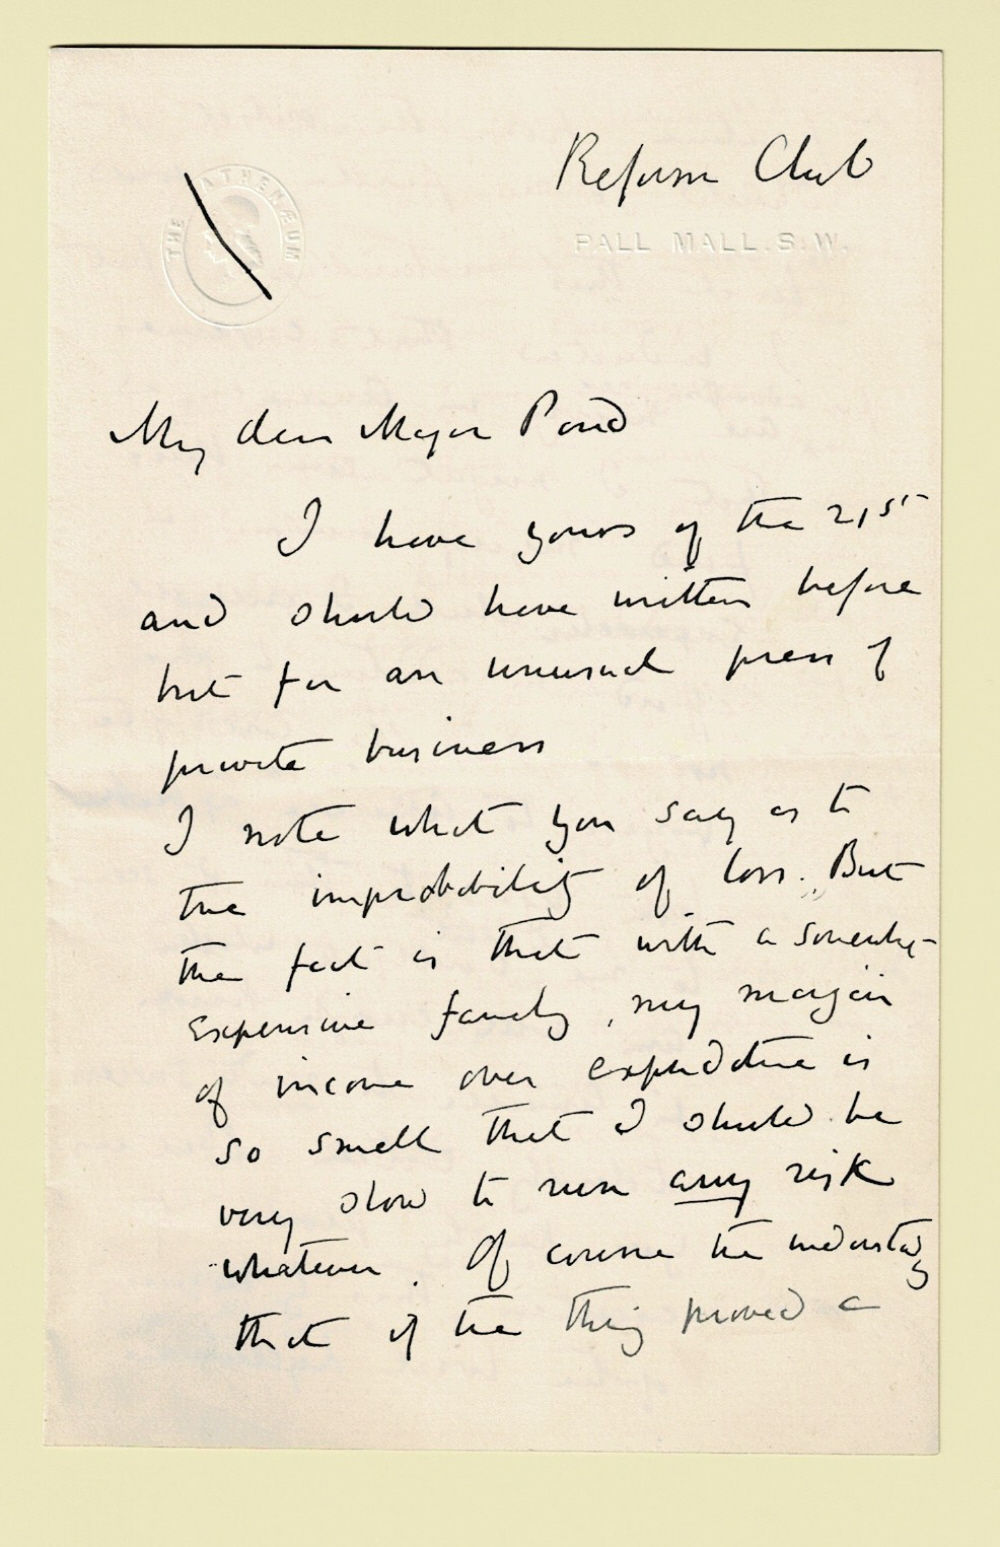 THE ATHENÆUM
Reform Club
PALL MALL. S. W.
My dear Major Pond
I have yours of the 21st
and should have written before
but for an unusual press of
private business
I note what you say as to
the improbability of loss. But
the fact is that with a somewhat
expensive family, my margin
of income over expenditure is
so small that I should be
very slow to run any risk
whatever. Of course the understandg
that if the thing proved a